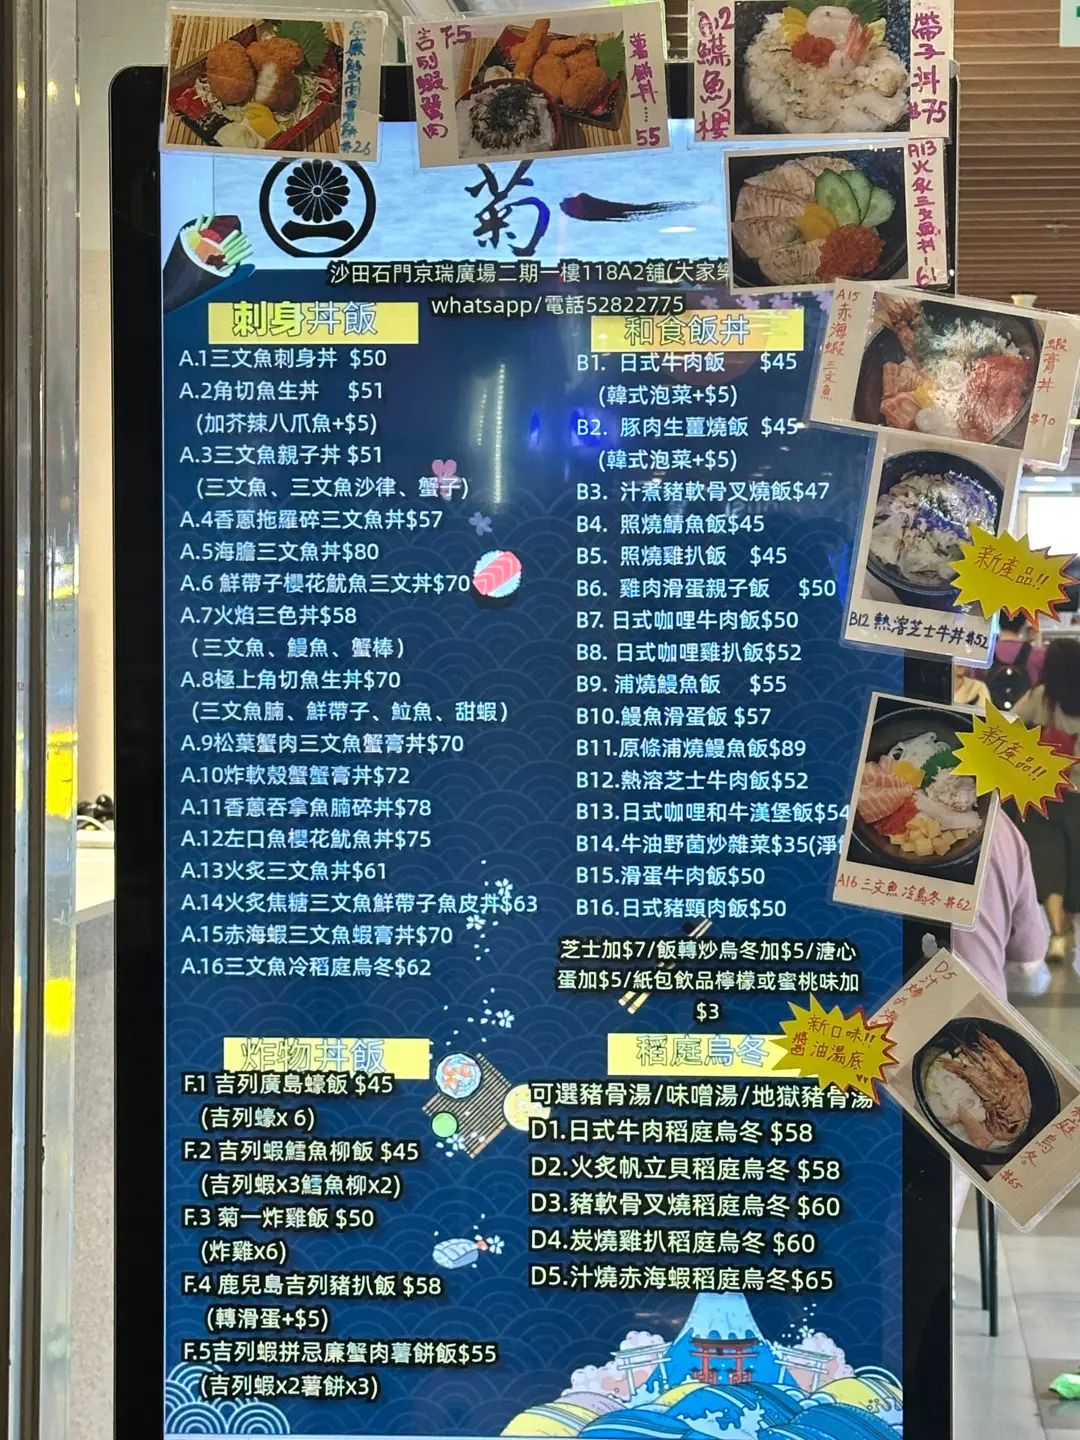 忌廉蟹肉薯餅 $26
吉列蝦蟹肉
F.5
薯餅丼……55
A12鰈魚櫻
帶子丼 $75
A13火炙三文魚丼！61
菊一
沙田石門京瑞廣場二期一樓118A2舖(大家樂
whatsapp/電話52822775
刺身丼飯
A.1三文魚刺身丼 $50
A.2角切魚生丼 $51
(加芥辣八爪魚+$5)
A.3三文魚親子丼 $51
(三文魚、三文魚沙律、蟹子)
A.4香蔥拖羅碎三文魚丼$57
A.5海膽三文魚丼$80
A.6 鮮帶子櫻花魷魚三文丼$70
A.7火焰三色丼$58
(三文魚、鰻魚、蟹棒)
A.8極上角切魚生丼$70
(三文魚腩、鮮帶子、鮫魚、甜蝦)
A.9松葉蟹肉三文魚蟹膏丼$70
A.10炸軟殼蟹蟹膏丼$72
A.11香蔥吞拿魚腩碎丼$78
A.12左口魚櫻花魷魚丼$75
A.13火炙三文魚丼$61
A.14火炙焦糖三文魚鮮帶子魚皮丼$63
A.15赤海蝦三文魚蝦膏丼$70
A.16三文魚冷稻庭烏冬$62
和食飯丼
B1. 日式牛肉飯 $45
(韓式泡菜+$5)
B2. 豚肉生薑燒飯 $45
(韓式泡菜+$5)
B3. 汁煮豬軟骨叉燒飯$47
B4. 照燒鯖魚飯$45
B5. 照燒雞扒飯 $45
B6. 雞肉滑蛋親子飯 $50
B7. 日式咖哩牛肉飯$50
B8. 日式咖哩雞扒飯$52
B9. 浦燒鰻魚飯 $55
B10.鰻魚滑蛋飯 $57
B11.原條浦燒鰻魚飯$89
B12.熱溶芝士牛肉飯$52
B13.日式咖哩和牛漢堡飯$54
B14.牛油野菌炒雜菜$35(淨
B15.滑蛋牛肉飯$50
B16.日式豬頸肉飯$50
芝士加$7/飯轉炒烏冬加$5/溏心
蛋加$5/紙包飲品檸檬或蜜桃味加
$3
A15
赤海蝦三文魚
蝦膏丼
$70
新產品!!
B12 熱溶芝士牛丼 $52
新產品!!
A16 三文魚冷烏冬 $62
炸物丼飯
F.1 吉列廣島蠔飯 $45
(吉列蠔x 6)
F.2 吉列蝦鱈魚柳飯 $45
(吉列蝦x3鱈魚柳x2)
F.3 菊一炸雞飯 $50
(炸雞x6)
F.4 鹿兒島吉列豬扒飯 $58
(轉滑蛋+$5)
F.5吉列蝦拼忌廉蟹肉薯餅飯$55
(吉列蝦x2薯餅x3)
稻庭烏冬
可選豬骨湯/味噌湯/地獄豬骨湯
D1.日式牛肉稻庭烏冬 $58
D2.火炙帆立貝稻庭烏冬 $58
D3.豬軟骨叉燒稻庭烏冬 $60
D4.炭燒雞扒稻庭烏冬 $60
D5.汁燒赤海蝦稻庭烏冬$65
新口味!!
醬油湯底
D5
庭烏冬
$65